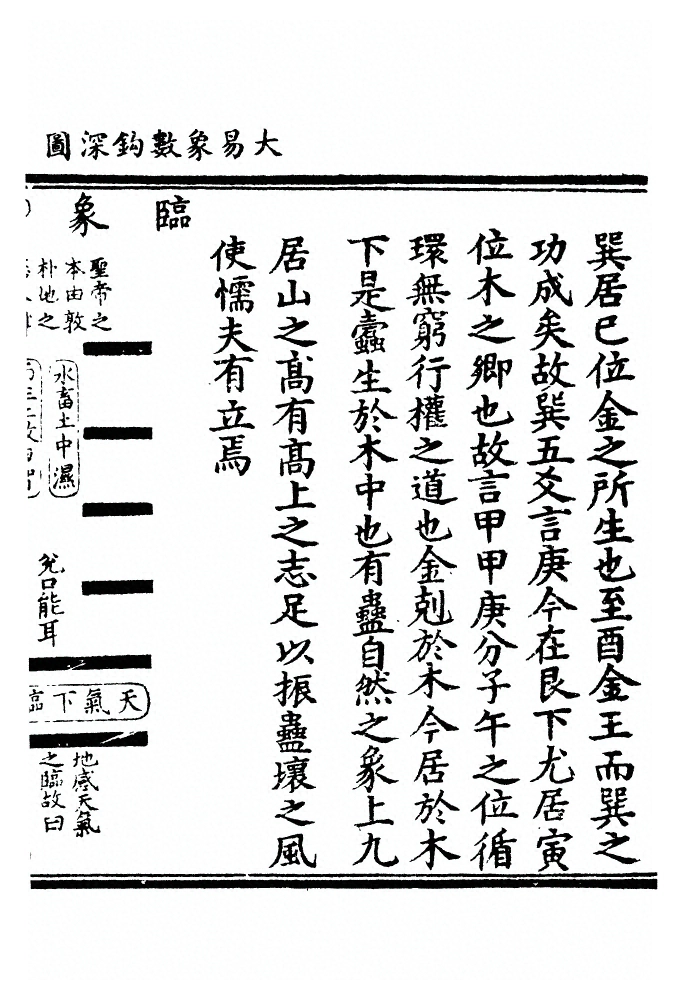 大易象數鈎深圖
巽居巳位金之所生也至酉金王而巽之
功成矣故巽五爻言庚今在艮下尤居寅
位木之鄉也故言甲甲庚分子午之位循
環無窮行權之道也金剋於木今居於木
下是蠹生於木中也有蠱自然之象上九
居山之高有高上之志足以振蠱壞之風
使懦夫有立焉
臨
象
聖帝之
本由敦
朴地之
水畜土中濕
兌口能耳
天氣下臨
地感天氣
之臨故曰